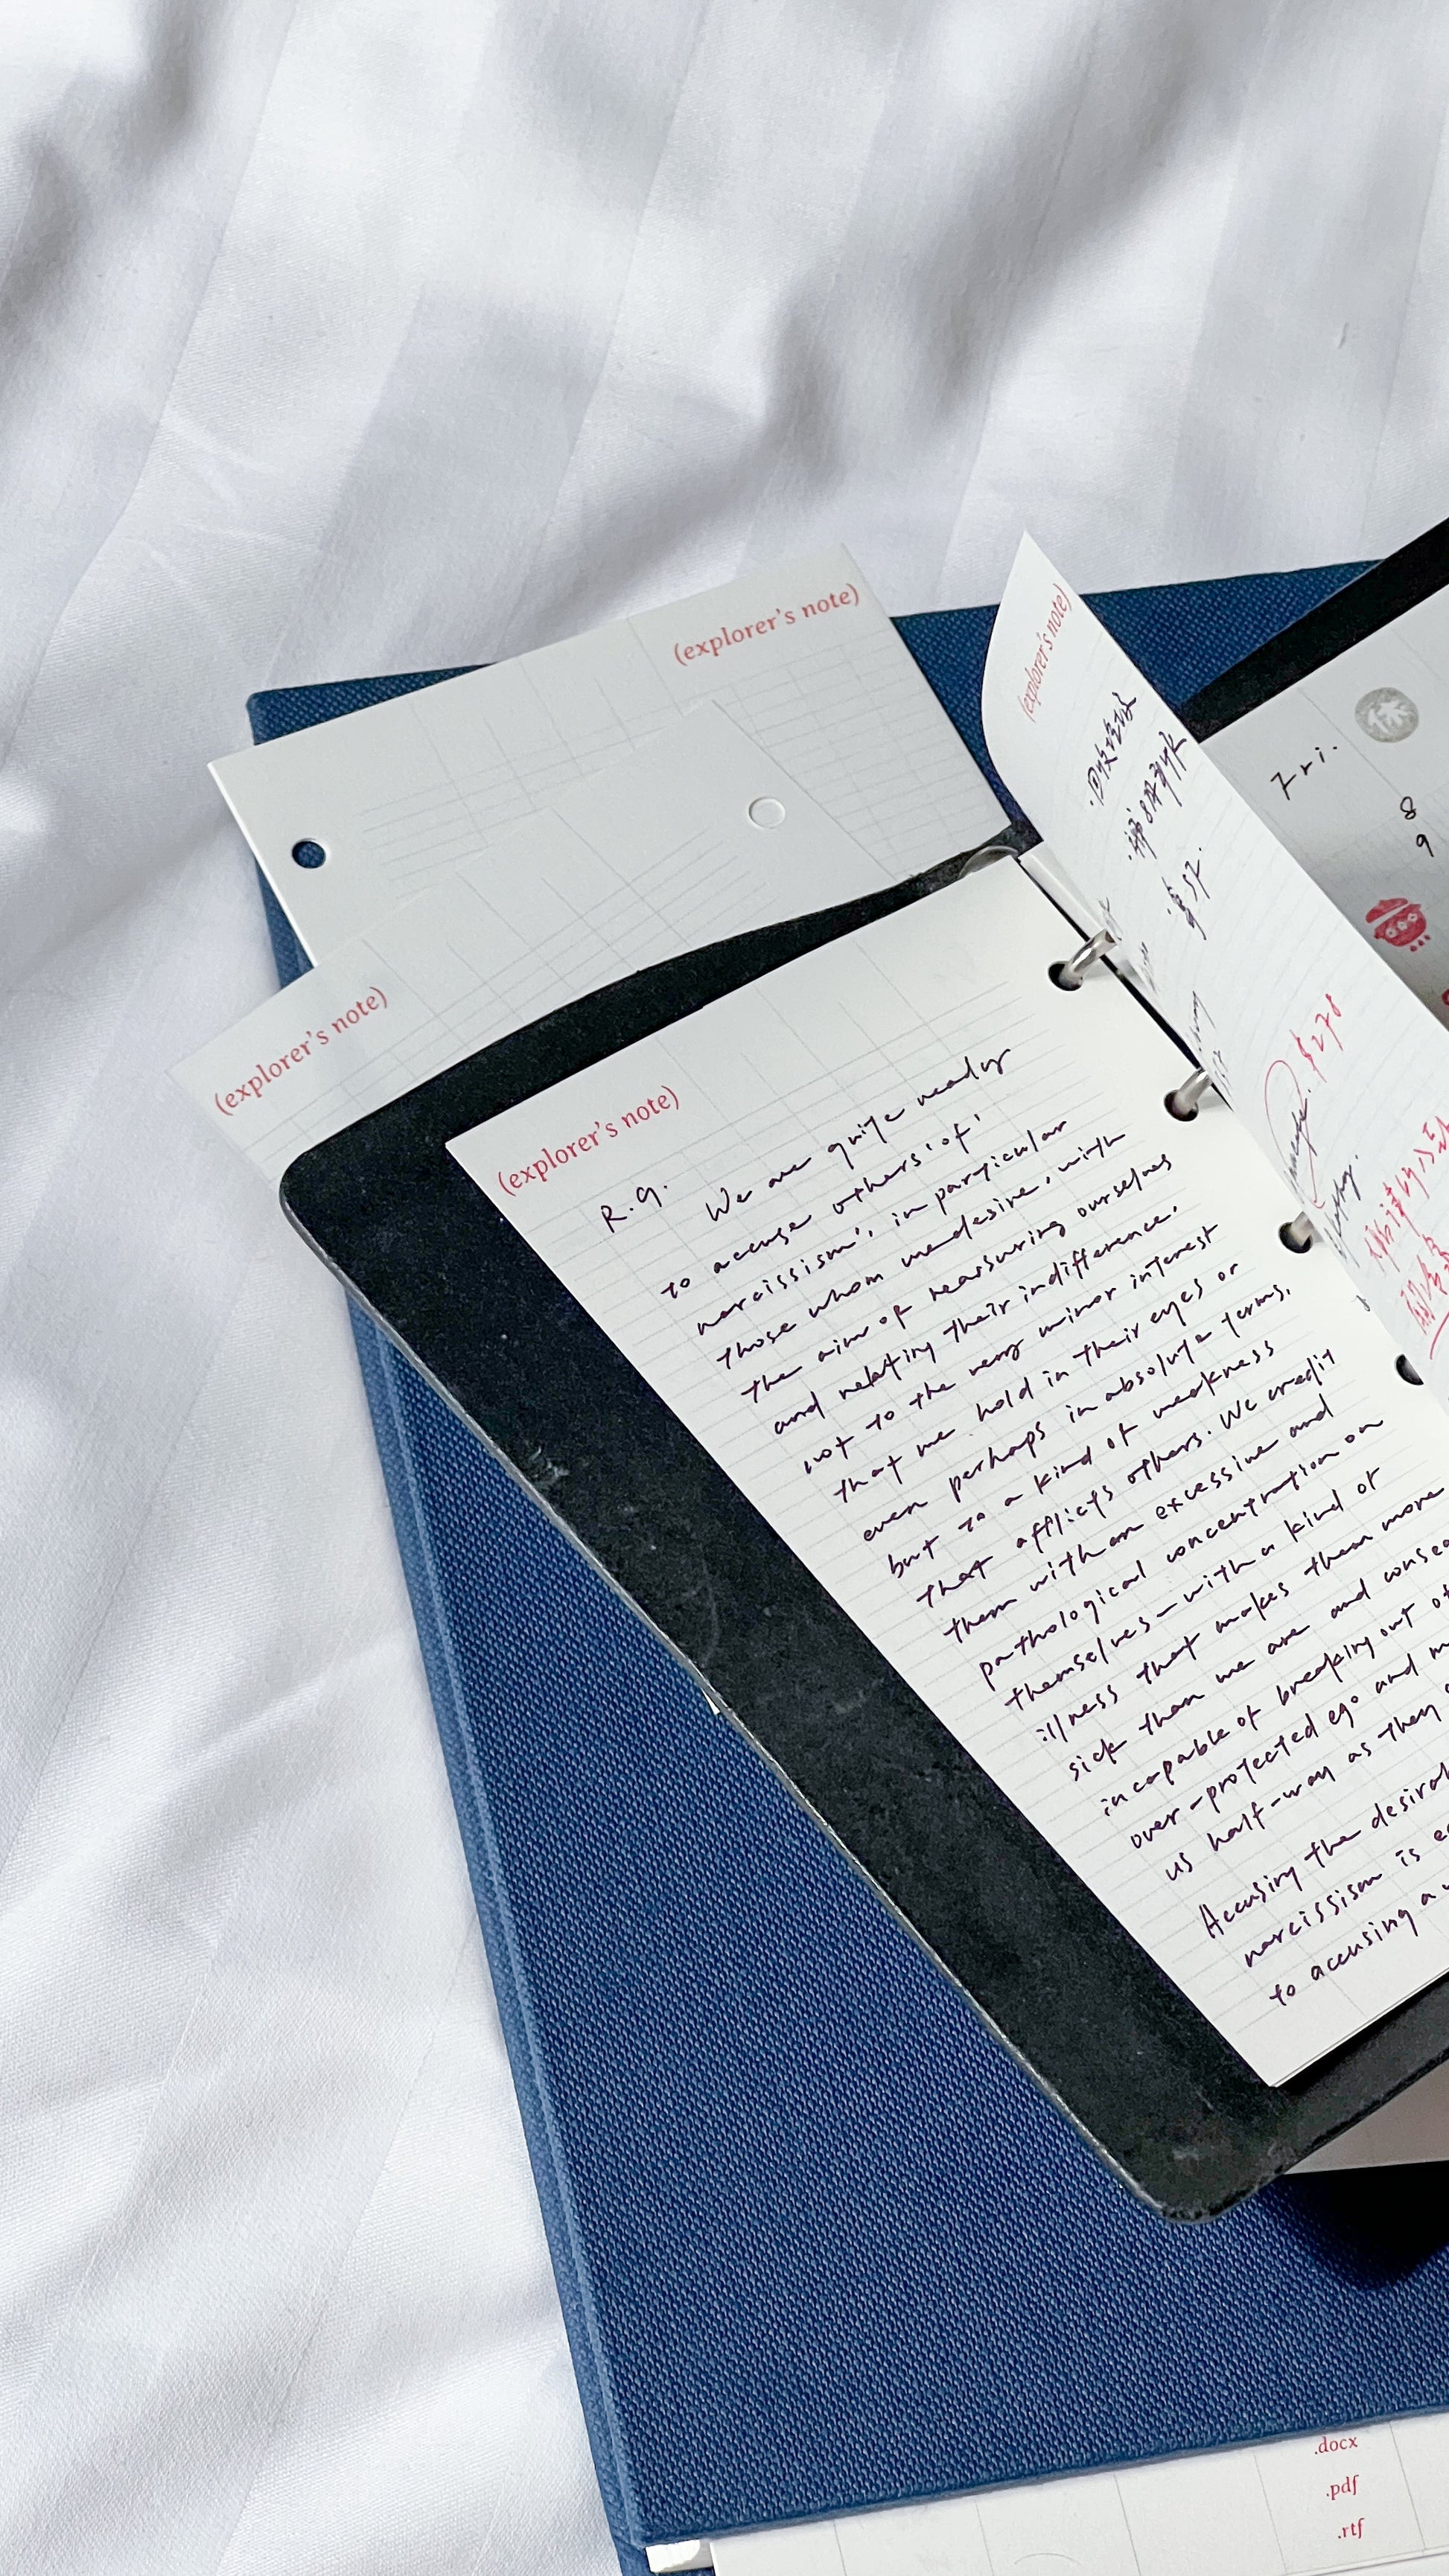 (explorer's note)
(explorer's note)
(explorer's note)
Fri.
8
9
(explorer's note)
R.G.
We are quite ready
to accuse others 'of'
narcissism', in particular
those whom we desire, with
the aim of reassuring ourselves
and relating their indifference.
not to the very minor interest
that we hold in their eyes or
even perhaps in absolute terms,
but to a kind of weakness
that afflicts others. We credit
them with an excessive and
pathological concentration on
themselves – with a kind of
illness that makes them more
sick than we are and conseq
incapable of breaking out of
over-protected ego and m
us half-way as they
Accusing the desirab
narcissism is eq
to accusing a w
$278
.docx
.pdf
.rtf